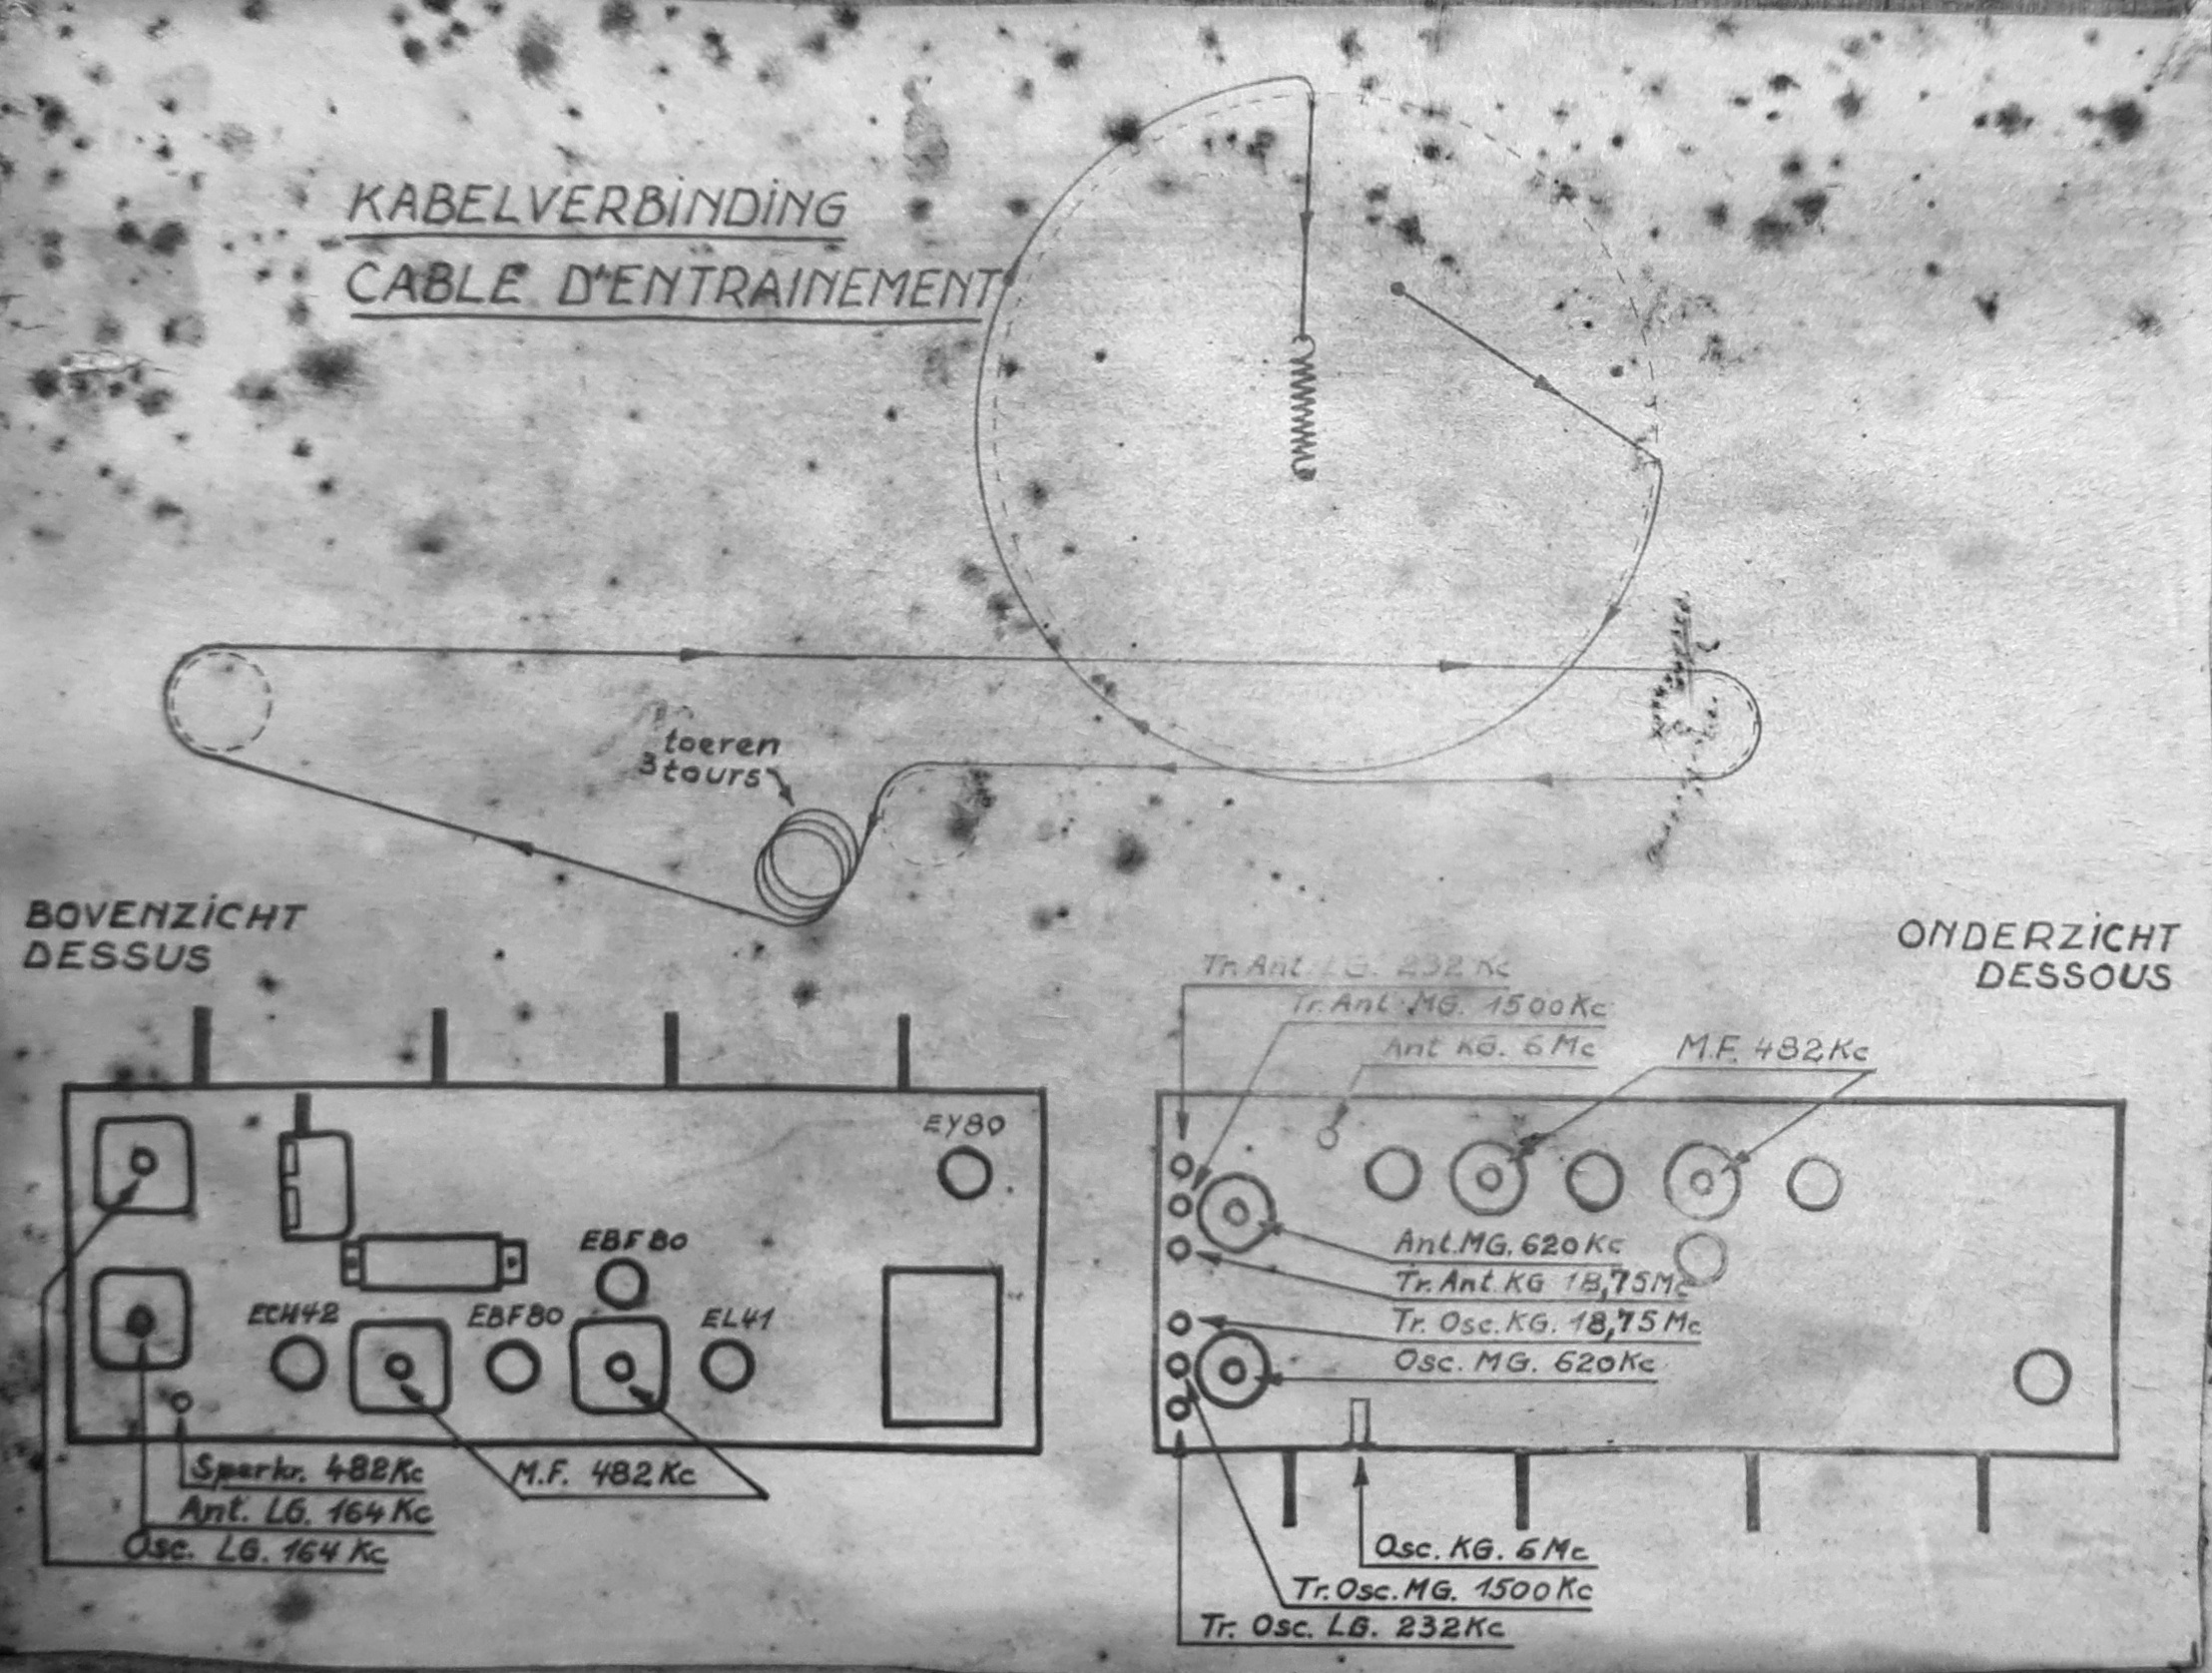 KABELVERBINDING
CABLE D'ENTRAINEMENT
toeren
3 tours
BOVENZICHT
DESSUS
EY80
EBF80
ECH42
EBF80
EL41
Sperkr. 482Kc
M.F. 482Kc
Ant. LG. 164Kc
Osc. LG. 164Kc
ONDERZICHT
DESSOUS
Tr. Ant. LG. 232Kc
Tr. Ant. MG. 1500Kc
Ant KG. 6Mc
M.F. 482Kc
Ant. MG. 620Kc
Tr. Ant. KG 18,75Mc
Tr. Osc. KG. 18,75Mc
Osc. MG. 620Kc
Osc. KG. 6Mc
Tr. Osc. MG. 1500Kc
Tr. Osc. LG. 232Kc